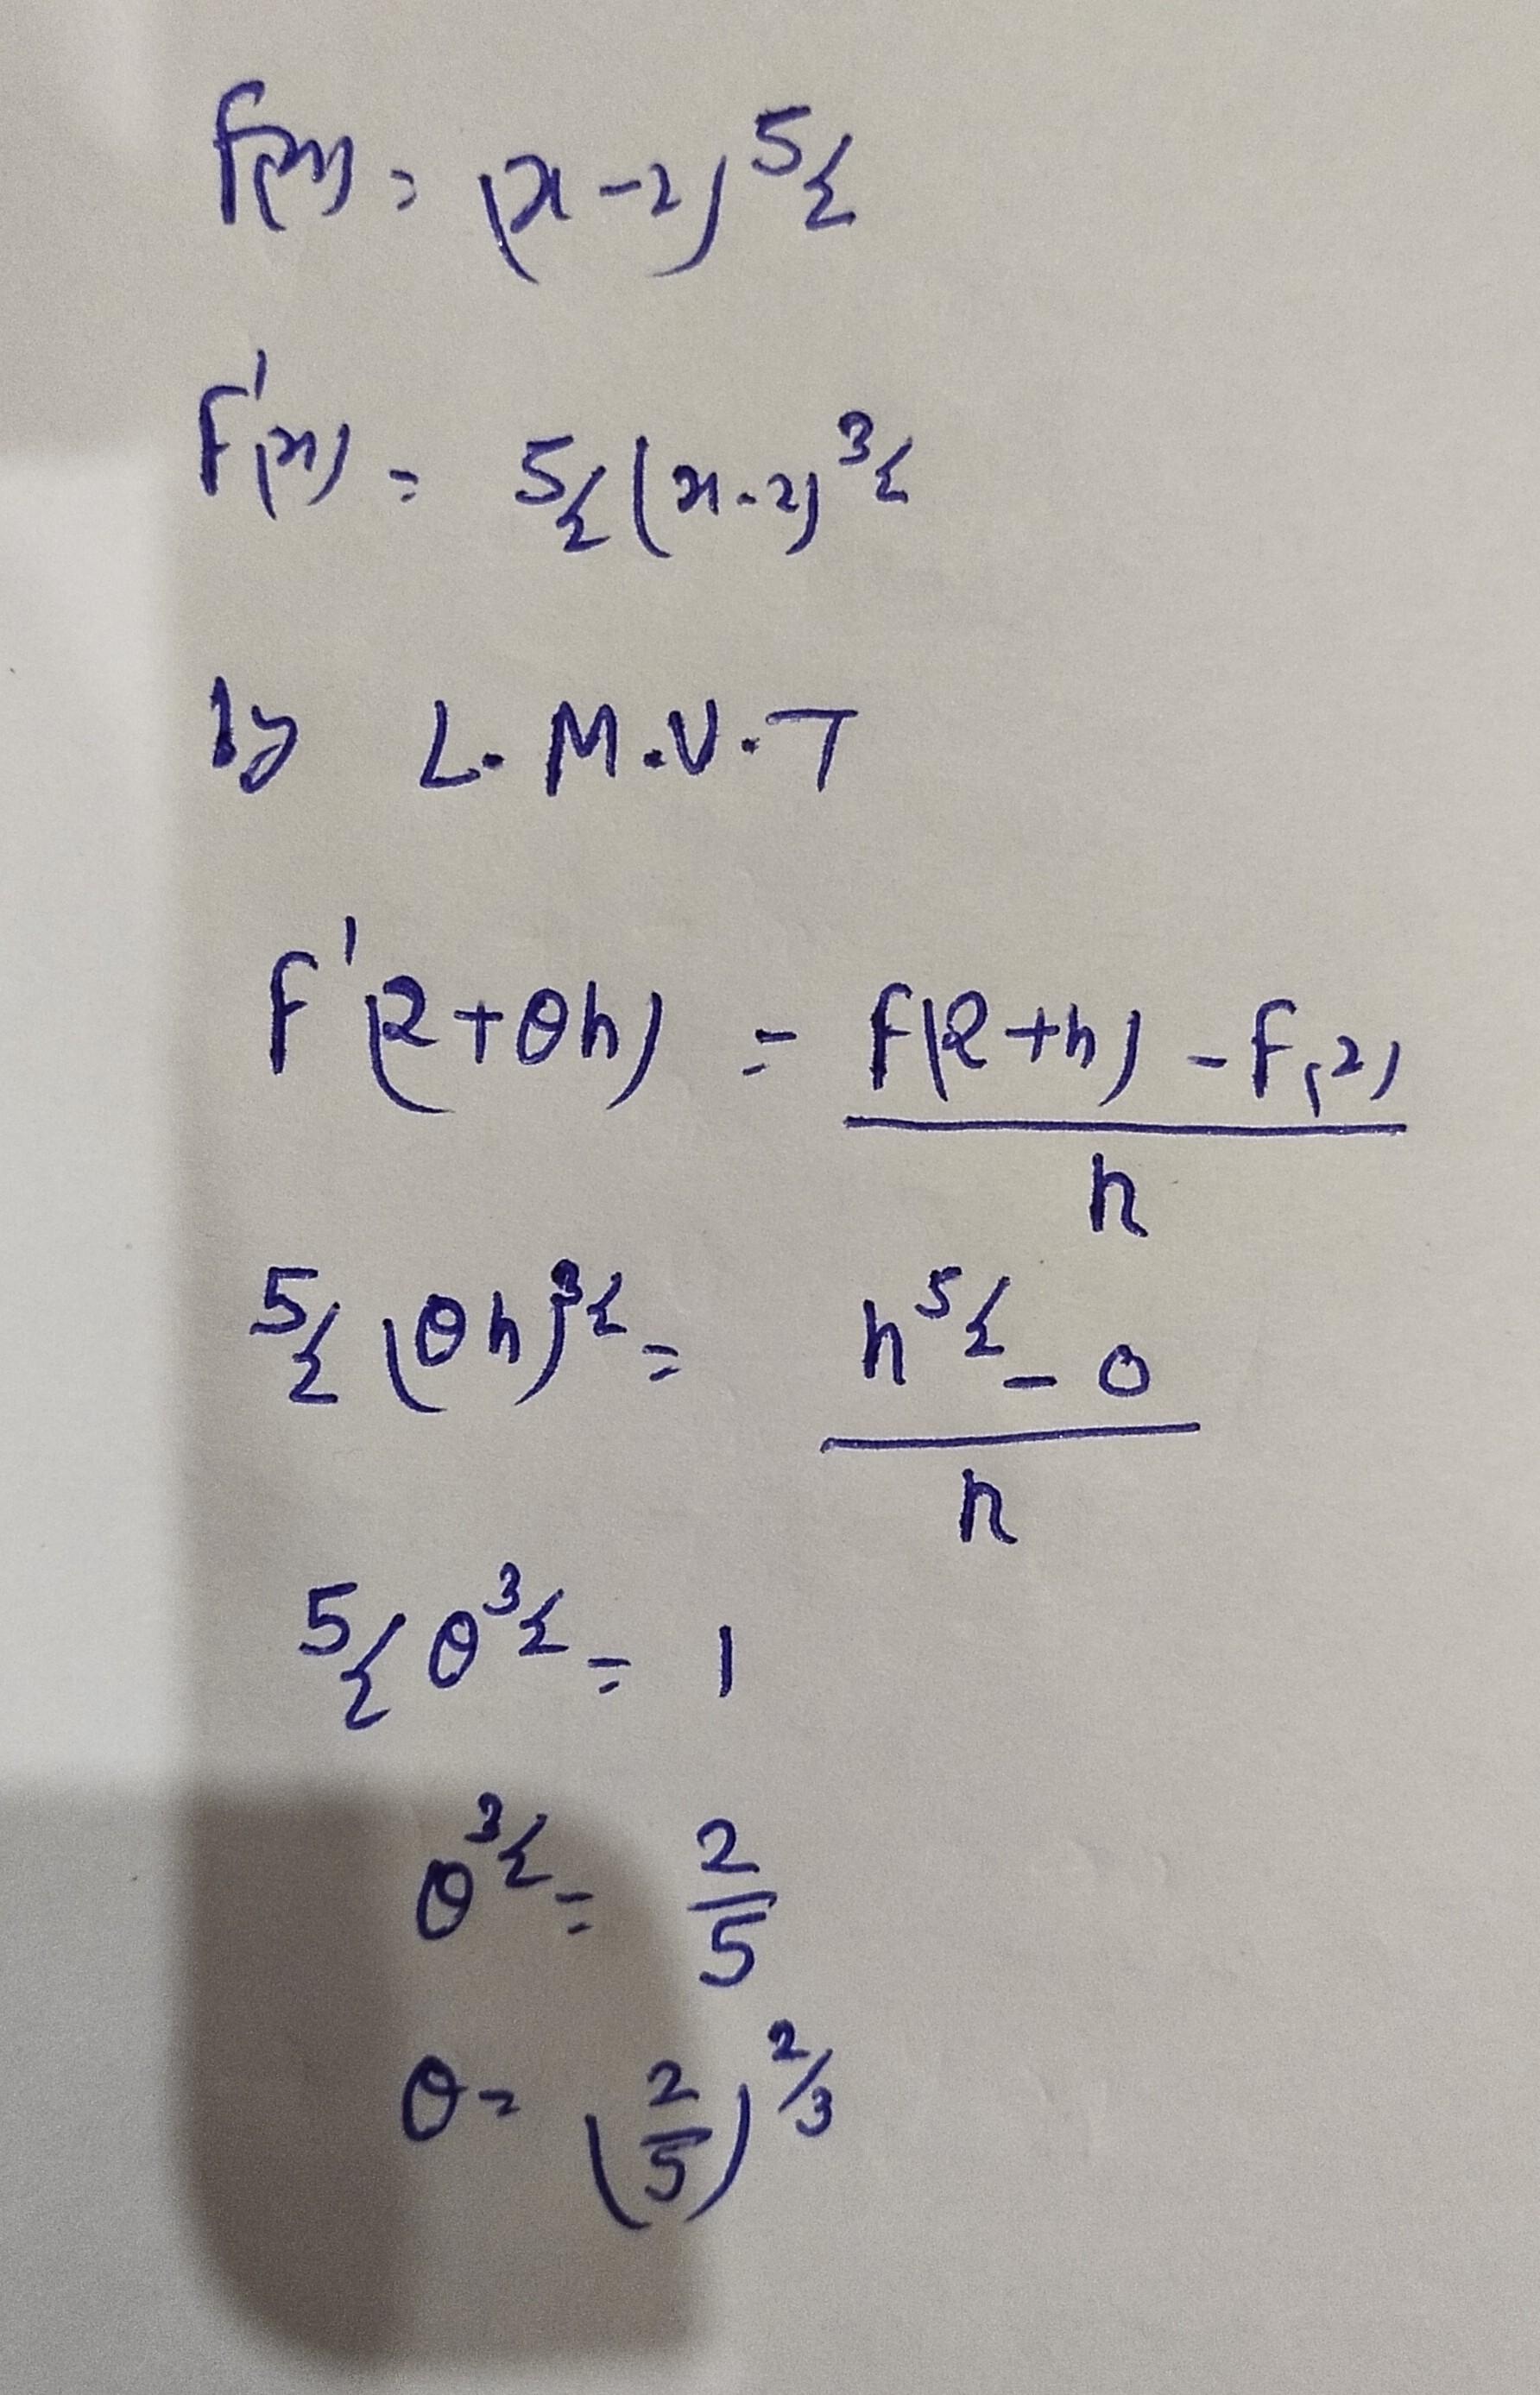 f(x) = (x-2)^5/2
f'(x) = 5/2 (x-2)^3/2
by L.M.V.T
f'(2+θh) = f(2+h) - f(2) / h
5/2 (θh)^3/2 = h^5/2 - 0 / h
5/2 θ^3/2 = 1
θ^3/2 = 2/5
θ = (2/5)^2/3